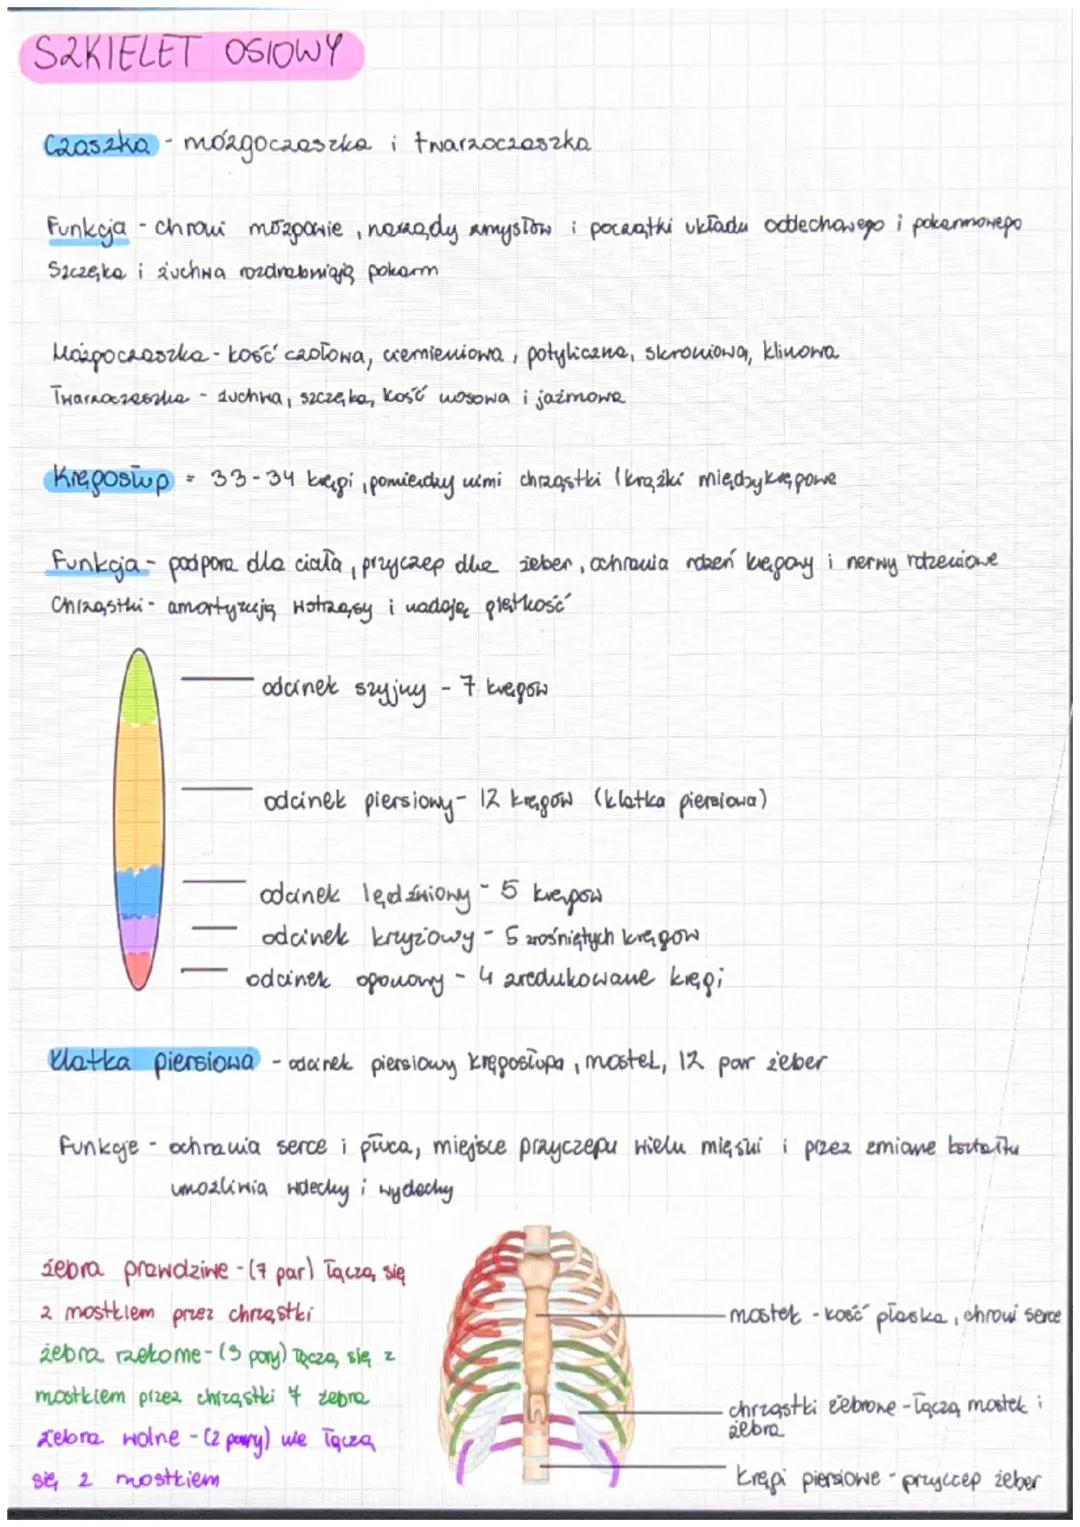 SZKIELET OSIOWY
Czaszka - mózgoczaszka i twarzoczaszka
Funkcja - chroni mózgowie, narządy zmysłów i początki układu oddechowego i pokarmowego
Szczęka i żuchwa rozdrabniają pokarm
Mózgoczaszka - kość czołowa, ciemieniowa, potyliczna, skroniowa, klinowa
Twarzoczaszka - żuchwa, szczęka, kość nosowa i jaźmowa
Kręgosłup = 33-34 kręgi, pomiędzy nimi chrząstki (krążki międzykręgowe
Funkcja - podpora dla ciała, przyczep dla żeber, ochrania rdzeń kręgowy i nerwy rdzeniowe
Chrząstki - amortyzują wstrząsy i nadają giętkość
odcinek szyjny - 7 kręgów
odcinek piersiowy - 12 kręgów (klatka piersiowa)
odcinek lędźwiowy - 5 kręgów
odcinek krzyżowy - 5 zrośniętych kręgów
odcinek ogonowy - 4 zredukowane kręgi
Klatka piersiowa - odcinek piersiowy kręgosłupa, mostek, 12 par żeber
Funkcje - ochrania serce i płuca, miejsce przyczepu wielu mięśni i przez zmianę kształtu
umożliwia wdechy i wydechy
żebra prawdziwe - (7 par) łączą się
z mostkiem przez chrząstki
żebra rzekome - (3 pary) łączą się z
mostkiem przez chrząstki 7 żebra
żebra wolne - (2 pary) nie łączą
się z mostkiem
mostek - kość płaska, chroni serce
chrząstki żebrowe - łączą mostek i
żebra
kręgi piersiowe - przyczep żeber